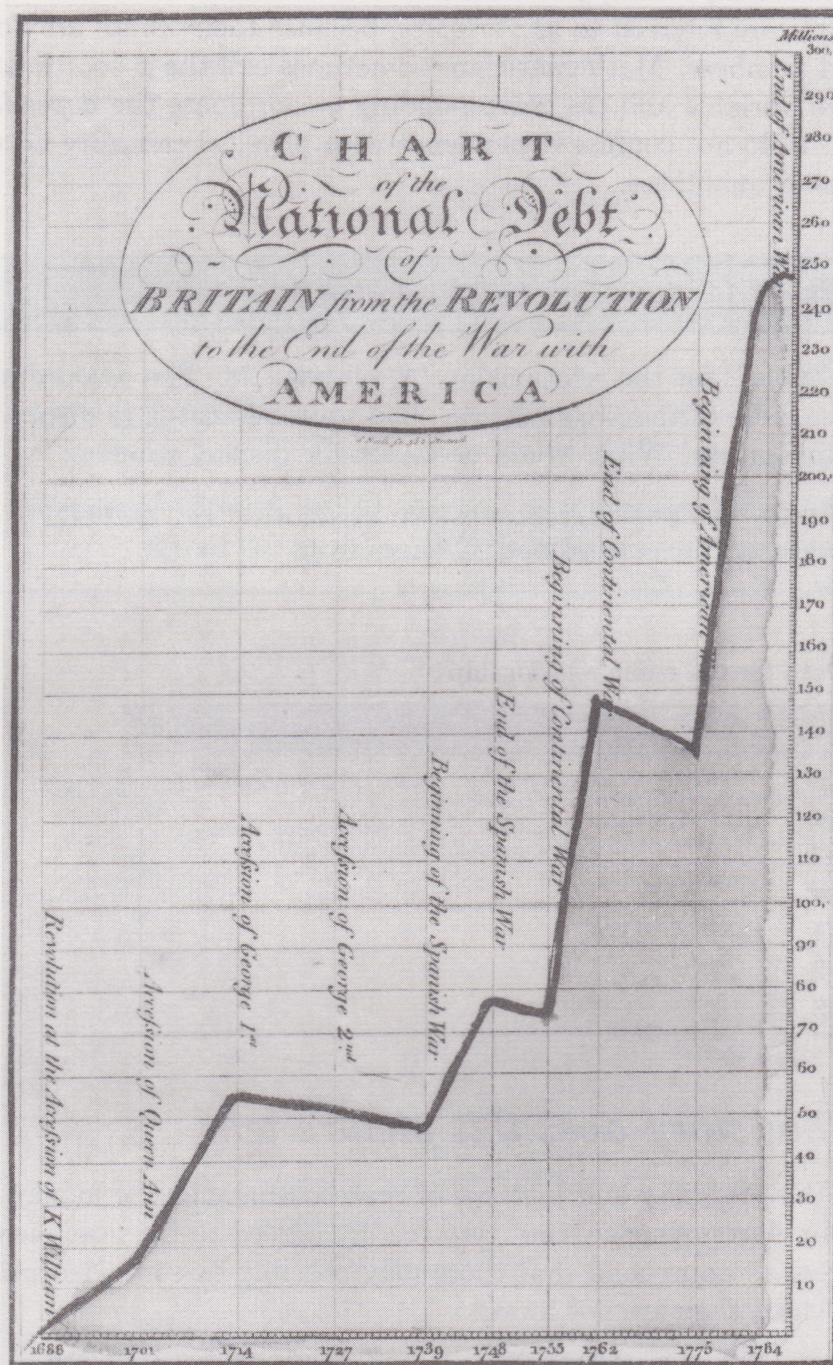 CHART
of the
National Debt
of
BRITAIN from the REVOLUTION
to the End of the War with
AMERICA
Millions
300
290
280
270
260
250
240
230
220
210
200
190
180
170
160
150
140
130
120
110
100
90
80
70
60
50
40
30
20
10
Revolution at the Acceſsion of K William
Acceſsion of Queen Ann
Acceſsion of George 1st
Acceſsion of George 2nd
Beginning of the Spanish War
End of the Spanish War
Beginning of Continental War
End of Continental War
Beginning of American War
End of American War
1688 1701 1714 1727 1739 1748 1755 1762 1775 1784